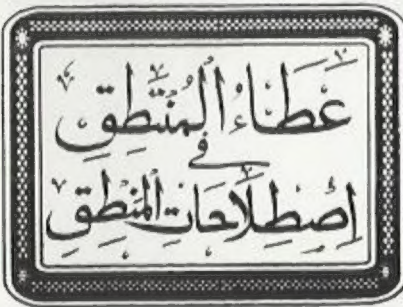 عَطَاءُ الْمُنْتَطِقِ
فِي
إِصْطِلَاحَاتِ الْمَنْطِقِ